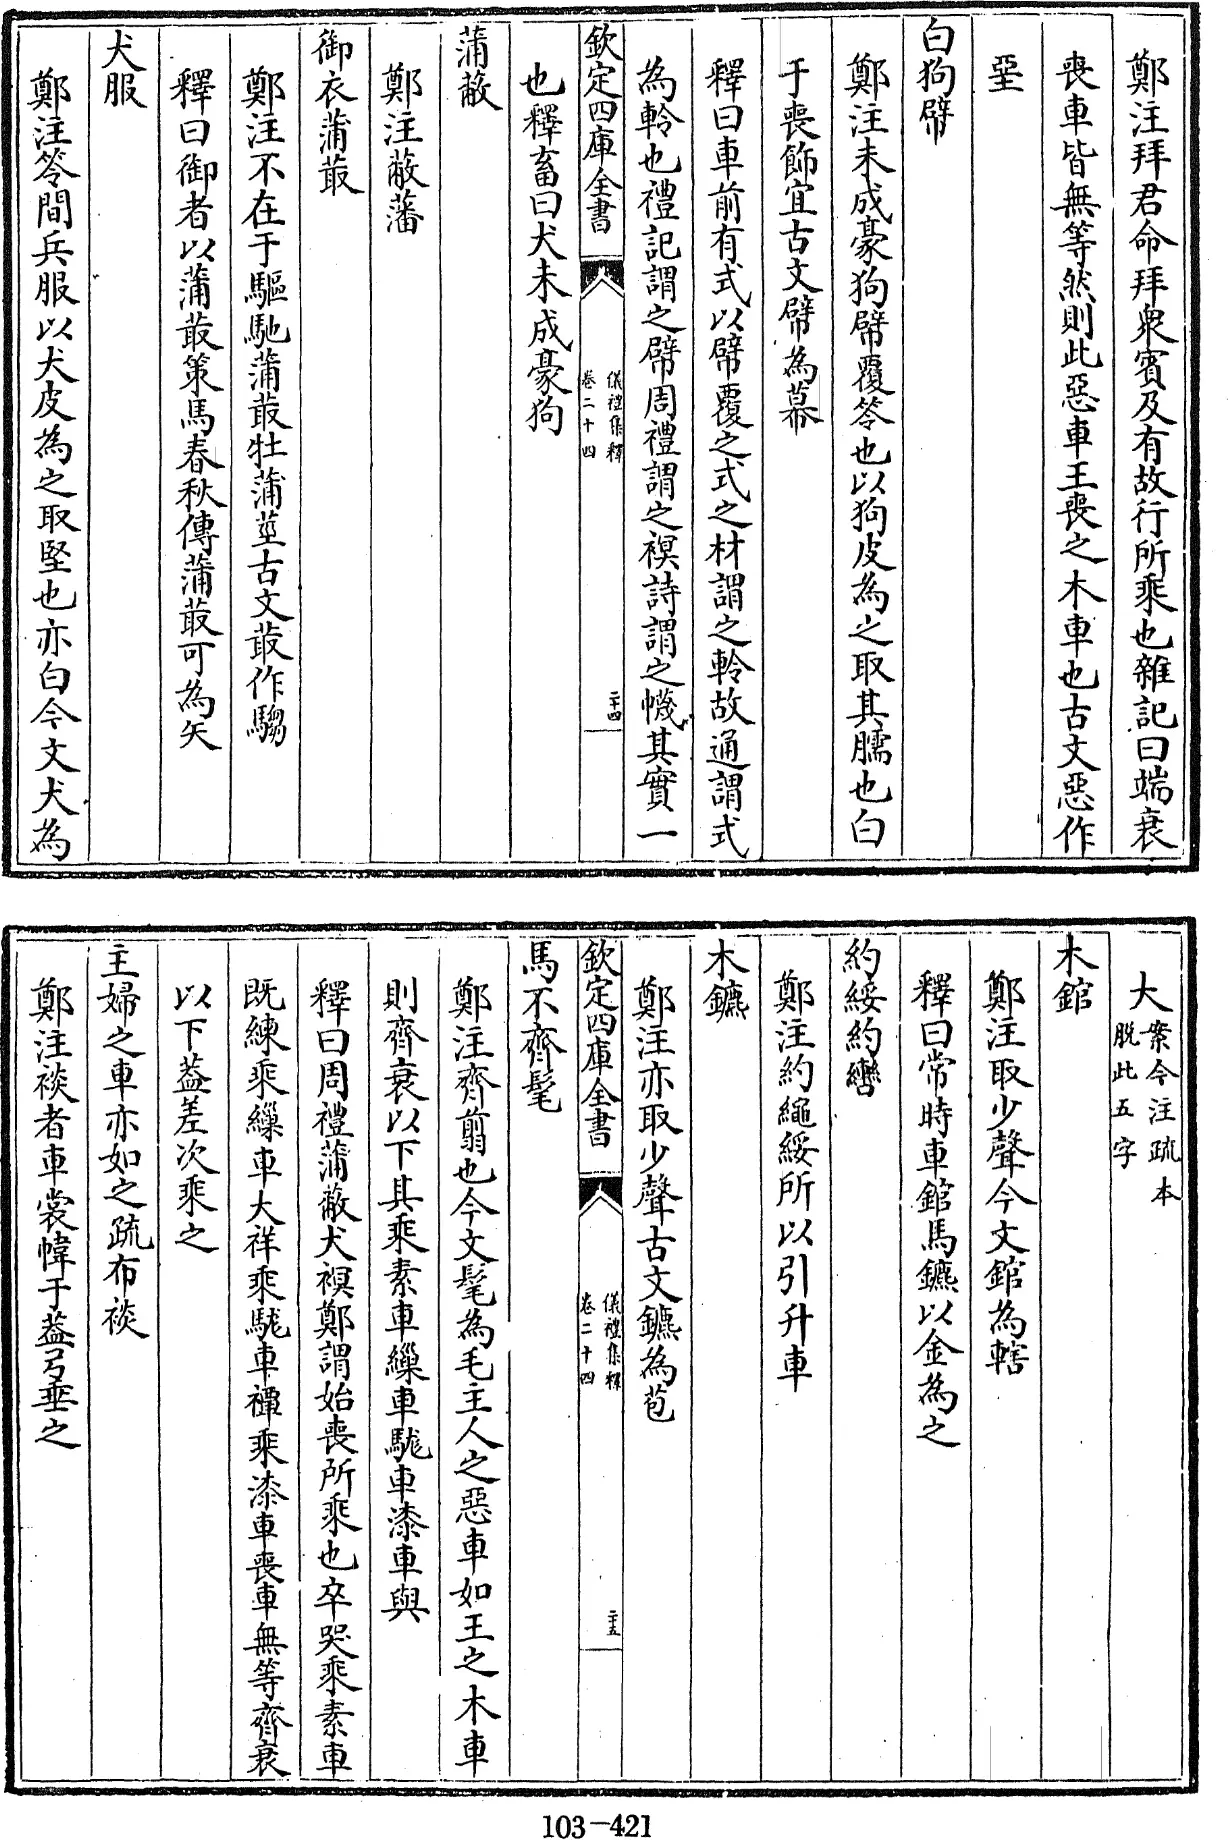 鄭注拜君命拜衆賓及有故行所乘也雜記曰端衰
喪車皆無等然則此惡車王喪之木車也古文惡作
堊
白狗幦
鄭注未成豪狗幦覆笭也以狗皮為之取其臑也白
于喪飾宜古文幦為幕
釋曰車前有式以幦覆之式之材謂之軨故通謂式
為軨也禮記謂之幦周禮謂之䙪詩謂之幭其實一
欽定四庫全書
儀禮集釋
卷二十四
二十四
也釋畜曰犬未成豪狗
蒲蔽
鄭注蔽藩
御衣蒲菆
鄭注不在于驅馳蒲菆牡蒲莖古文菆作騶
釋曰御者以蒲菆策馬春秋傳蒲菆可為矢
犬服
鄭注笭間兵服以犬皮為之取堅也亦白今文犬為
大案今注疏本
脱此五字
木錧
鄭注取少聲今文錧為轄
釋曰常時車錧馬鑣以金為之
約綏約轡
鄭注約繩綏所以引升車
木鑣
鄭注亦取少聲古文鑣為苞
欽定四庫全書
儀禮集釋
卷二十四
二十五
馬不齊髦
鄭注齊翦也今文髦為毛主人之惡車如王之木車
則齊衰以下其乘素車繅車駹車漆車與
釋曰周禮蒲蔽犬䙪鄭謂始喪所乘也卒哭乘素車
既練乘繅車大祥乘駹車禫乘漆車喪車無等齊衰
以下葢差次乘之
主婦之車亦如之疏布裧
鄭注裧者車裳幃于葢弓垂之
103-421